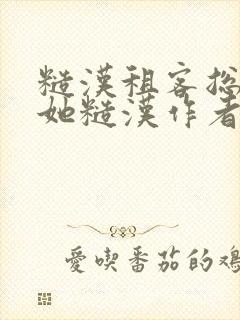 糙漢租客総
她糙漢作者
愛喫番茄的鳮